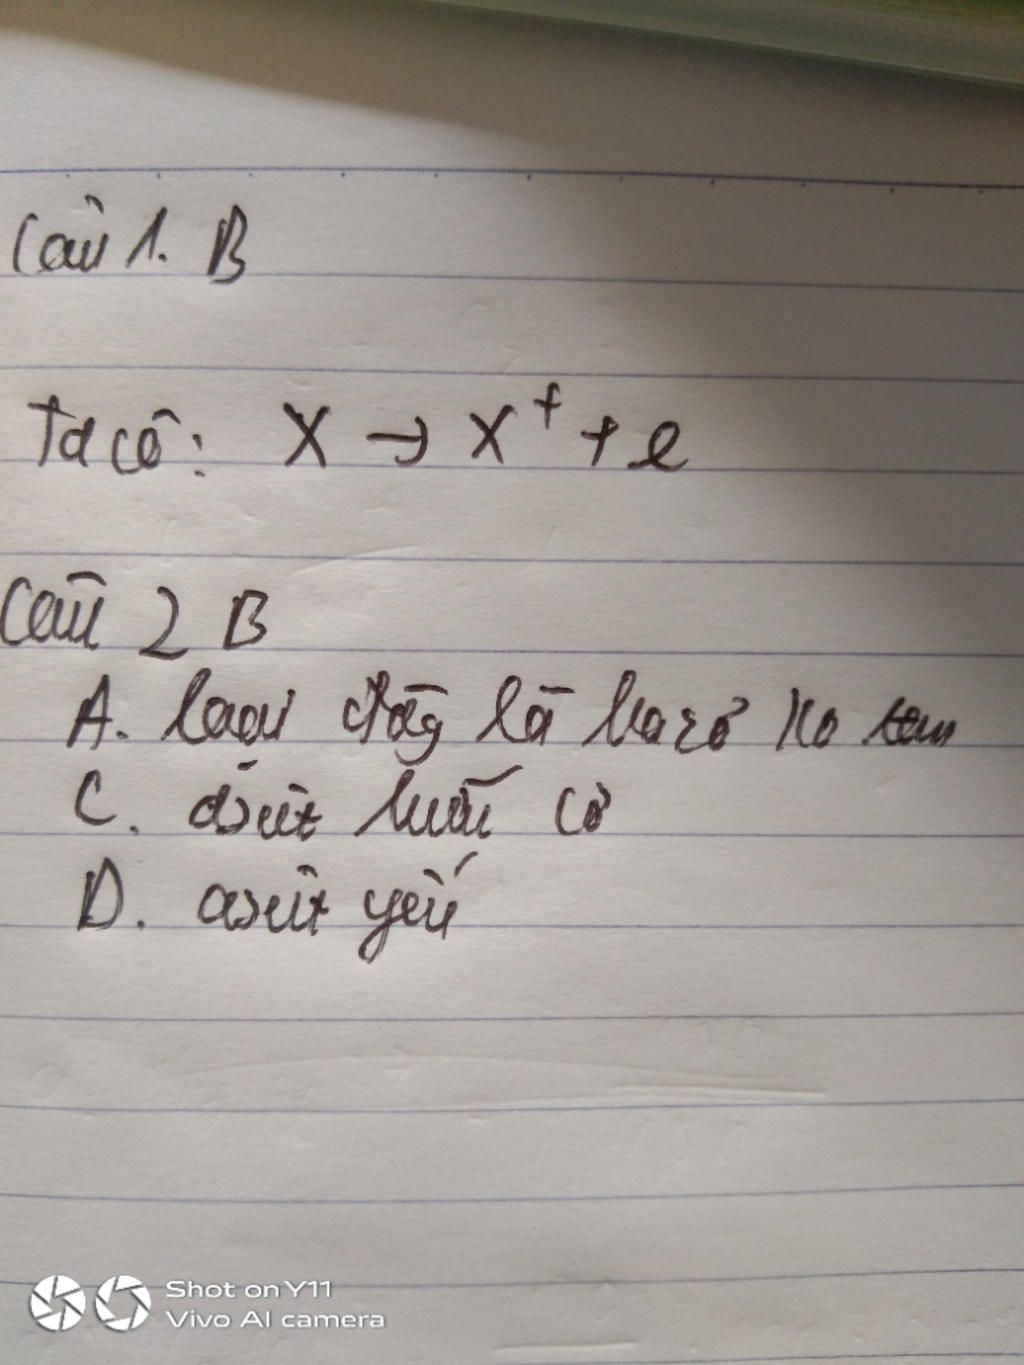 Câu 1. B
Ta có: X → X⁺ + e
Câu 2 B
A. loại đáp là bazơ ko tan
C. axit hữu cơ
D. axit yếu
Shot on Y11
Vivo AI camera